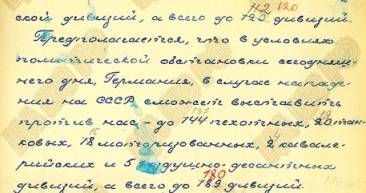 ской дивизий, а всего до 120 дивизий. 112 120
Предполагается, что в условиях
политической обстановки сегодняш-
него дня, Германия, в случае нападе-
ния на СССР сможет выставить
137
против нас – до 144 пехотных, 20 тан- 19
15
ковых, 18 моторизованных, 2 кавале- 4
рийских и 5 воздушно-десантных
180
дивизий, а всего до 189 дивизий.